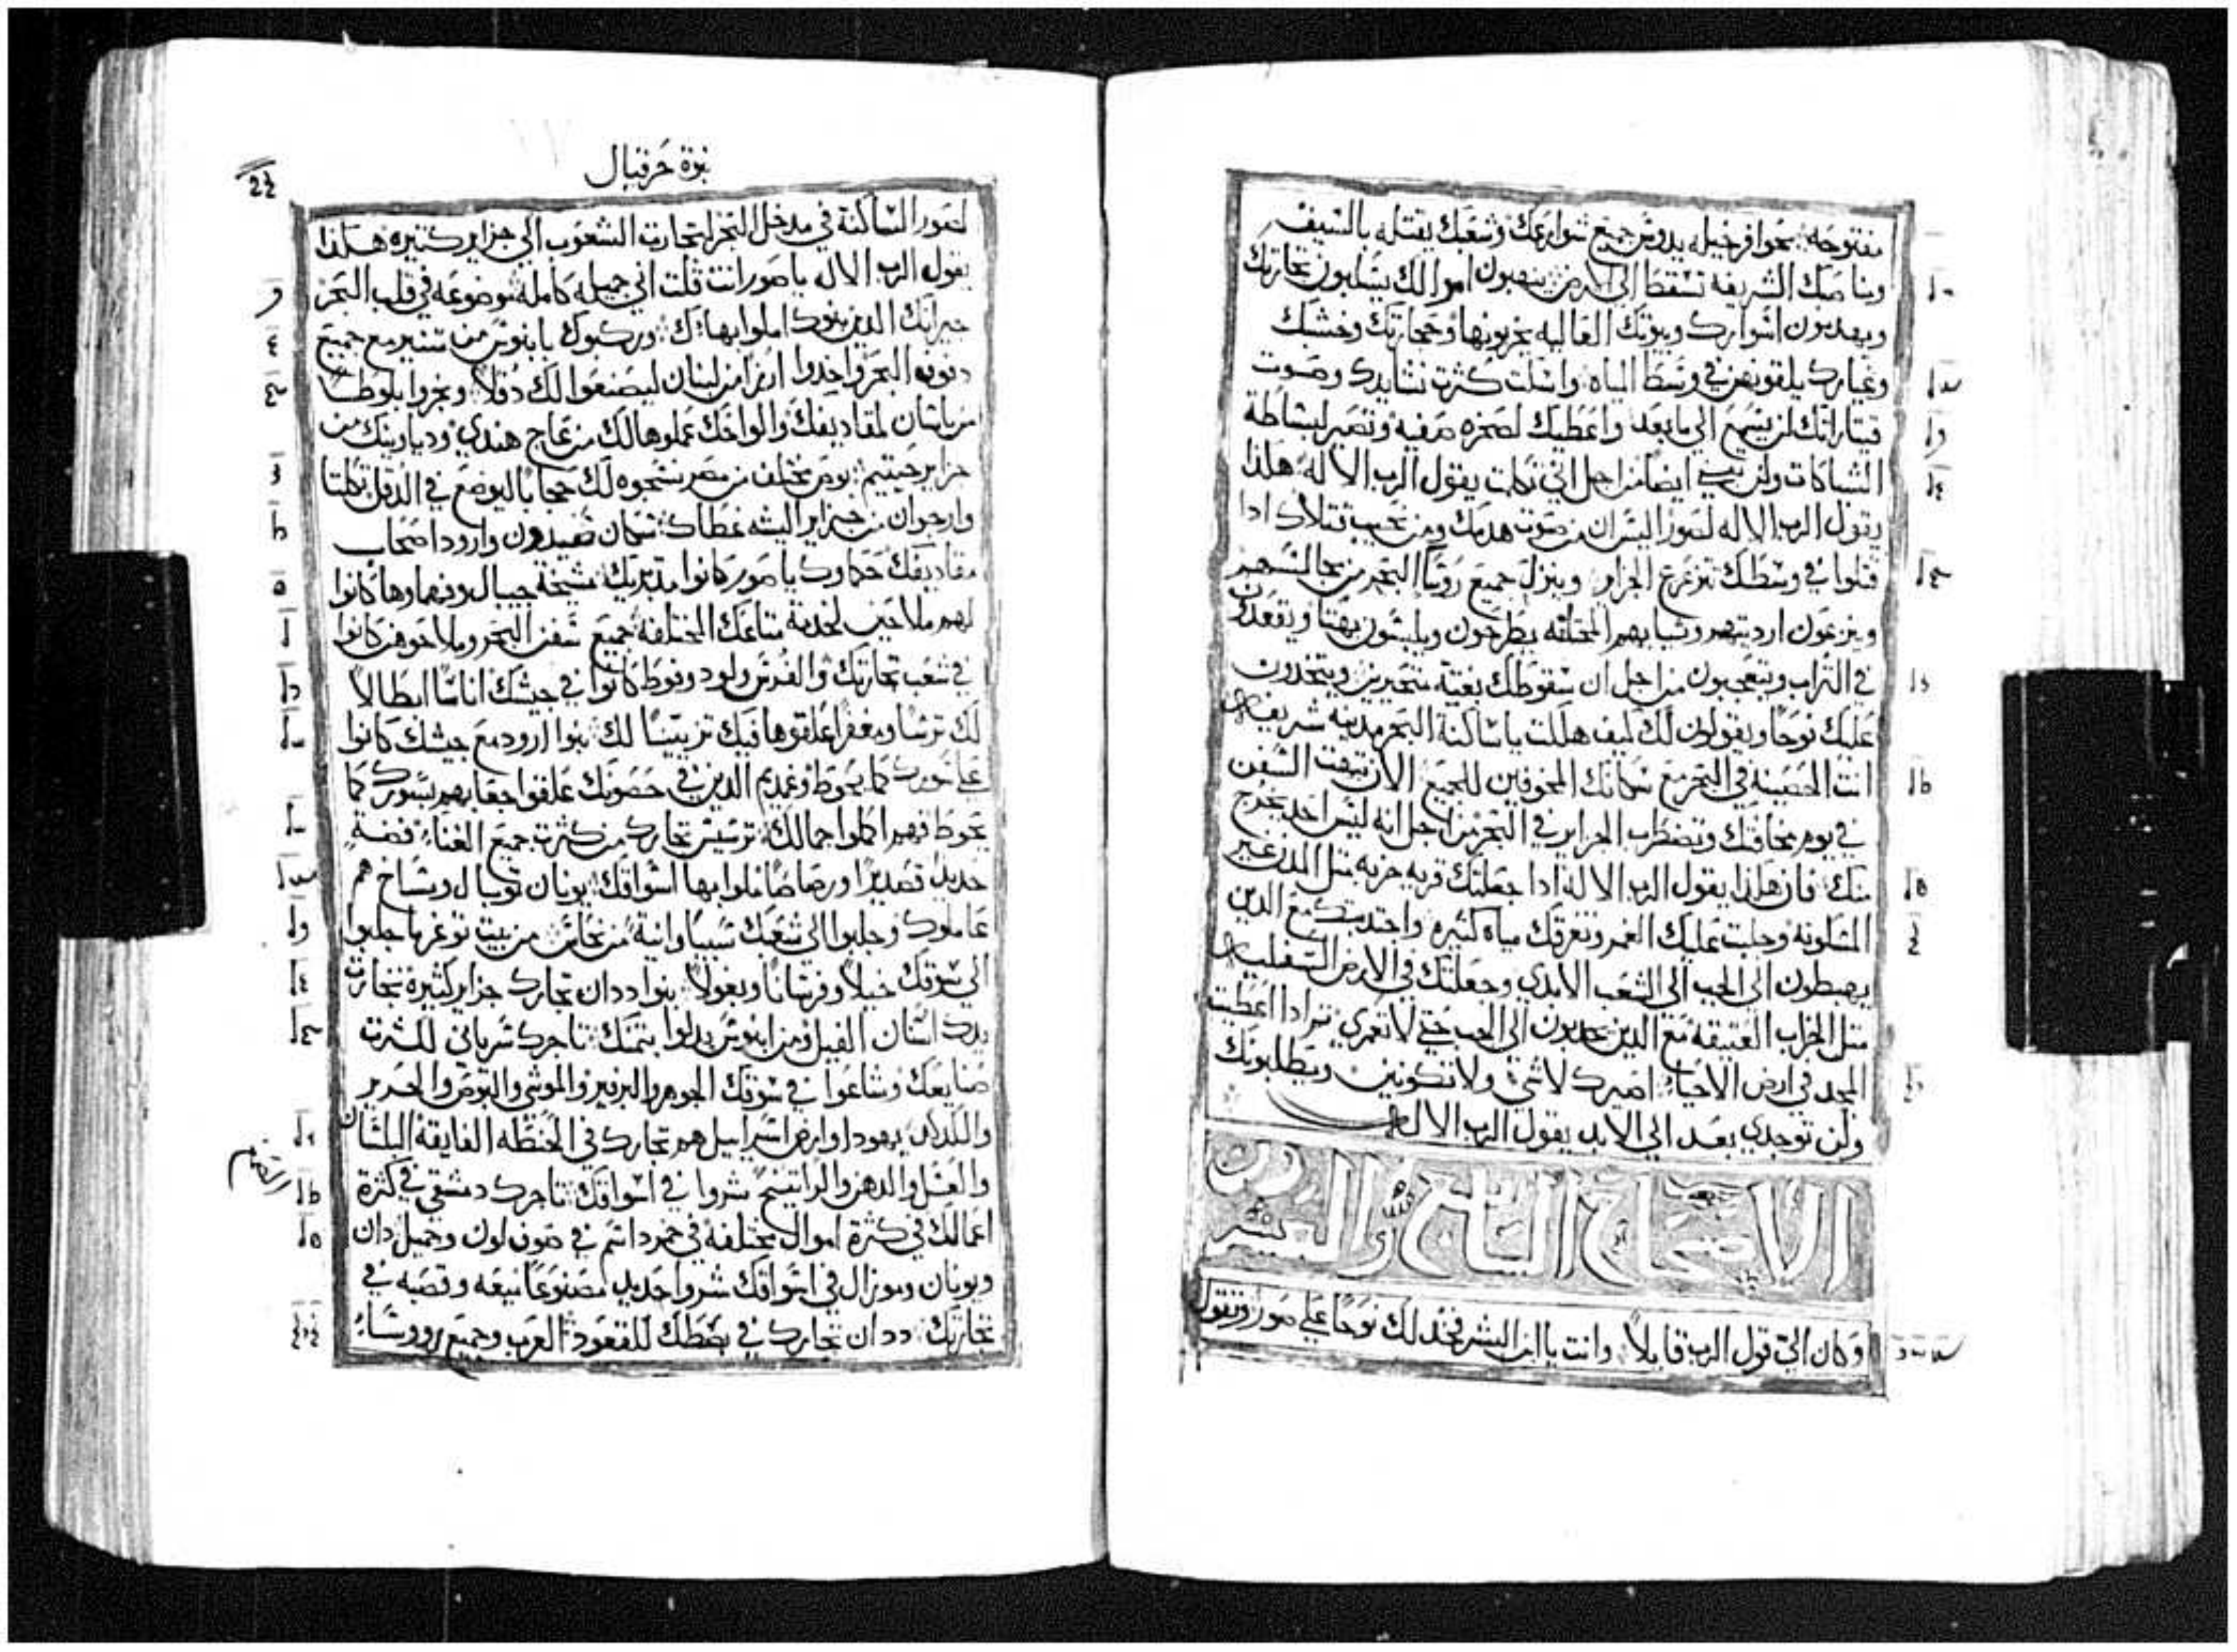 مفتوحة بحوافر خيله يدوش جميع شوارعك وشعبك يقتله بالسيف
ومناصبك الشريفه تسقط الى الارض ينهبون اموالك يسلبون تجارتك
ويهدمون اسوارك وبيوتك العاليه يخربونها وحجارتك وخشبك
وغبارك يلقونهن في وسط المياه واسكت كثرة نشايدك وصوت
قيتاراتك لن يسمع الى ما بعد واعطيك لصخره صفيه وتصير لبساطة
الشباكات ولن تبني ايضا من اجل اني تكلمت يقول الرب الاله هكذا
يقول الرب الاله لصور اليس ان من صوت هدمك ومن نحيب قتلاك اذا
قتلوا في وسطك تتزعزع الجزاير وينزل جميع روسا البحر من مجالسهم
وينزعون ارديتهم وثيابهم المختلفه يطرحون ويلبسون بهتا ويقعدون
في التراب ويتعجبون من اجل ان سقوطك بغتة متحيرين ويتخدون
عليك نوحا ويقولون لك كيف هلكت يا ساكنة البحر مدينه شريفه
انت الحصينه في البحر مع سكانك المخوفين للجميع الان تبهت السفن
في يوم مخافتك وتضطرب الجزاير في البحر من اجل انه ليس احد يخرج
منك فان هكذا يقول الرب الاله اذا جعلتك قريه خربه مثل المدن غير
المسكونه وجلبت عليك الغمر وتغرقك مياه كثيره واحتدرتك مع الدين
يهبطون الى الجب الى الشعب الابدي وجعلتك في الارض السفليه
مثل الخراب العتيقه مع الدين يحدرون الى الجب حتى لا تعمري ثم اذا اعطيت
المجد في ارض الاحياء اصيرك لا شي ولا تكونين وتطلبونك
ولن توجدي بعد الى الابد يقول الرب الاله
الاصحاح السابع والعشرون
وكان الي قول الرب قايلا وانت يا ابن البشر فخد لك نوحا على صور وتقول
نبوة حزقيال
لصور الساكنة في مدخل البحر لتجارت الشعوب الى جزاير كثيره هكذا
يقول الرب الاله يا صور انت قلت اني جميله كامله موضوعه في قلب البحر
جيرانك الدين بنوك اكملوا بهاك وركبوك بابنوس من سنير مع جميع
دفوف البحر واخدوا ارزا من لبنان ليصنعوا لك دقلا ونجروا بلوطا
من باسان لمقاديفك والواحك عملوها لك من عاج هندي ودياوينك من
جزاير حيتيم بوص مختلف من مصر نسجوه لك حجابا ليوضع في الدقل تكلتا
وارجوان من جزاير اليشه غطاك سكان صيدون وارود اصحاب
مقاديفك حكاوك يا صور كانوا مدبريك مشيخة جيبال وفهماوها كانوا
لهم ملاحين لخدمة متاعك المختلفة جميع سفن البحر وملاحوهن كانوا
في شعب تجارتك والفرس ولود وفوط كانوا في جيشك اناسا ابطالا
لك ترسا ومغفرا علقوها فيك تزيينا لك بنوا ارود مع جيشك كانوا
على سورك كما يحوط وغمديم الدين في حصونك علقوا جعابهم بسورك كما
يحوط فهم اكملوا جمالك ترسيس تجارك من كثرت جميع الغناء فضة
حديد قصديرا ورصاصا ملوا بها اسواقك يونان توبال وماساخ هم
عاملوك وجلبوا الى شعبك سبيا وانية من نحاس من بيت توغرما جلبوا
الى سوقك خيلا وفرسانا وبغولا بنوا ددان تجارك جزاير كثيرة تجارت
يدك اسنان الفيل ومن ابنوس بدلوا بثمنك تاجرك سرياني لكثرت
صنايعك وشاعوا في سوقك الجوهر والبرفير والموشي والبوص والحرير
والكدكد يهودا وارض اسراييل هم تجارك في الحنطه الفايقة البلسان
والعسل والدهن والراتينج شروا في اسواقك تاجرك دمشقي في كثرة
اعمالك في كثرة اموال مختلفة في خمر داسم في صوف لون وجميل دان
ويونان وموزال في اسواقك شروا حديد مصنوعا ميعه وقصبه في
تجارتك ددان تجارك في بسطك للقعود العرب وجميع رووساء